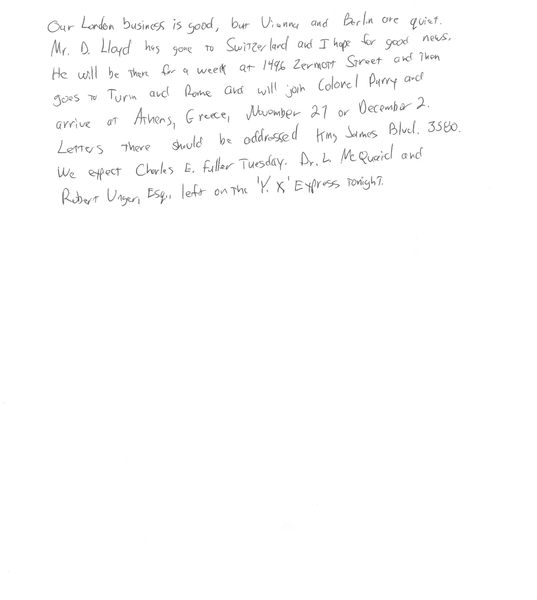 Our London business is good, but Vienna and Berlin are quiet.
Mr. D. Lloyd has gone to Switzerland and I hope for good news.
He will be there for a week at 1496 Zermott Street and then
goes to Turin and Rome and will join Colonel Parry and
arrive at Athens, Greece, November 27 or December 2.
Letters there should be addressed King James Blvd. 3580.
We expect Charles E. Fuller Tuesday. Dr. L McQuaid and
Robert Unger, Esq., left on the 'Y. X' Express tonight.